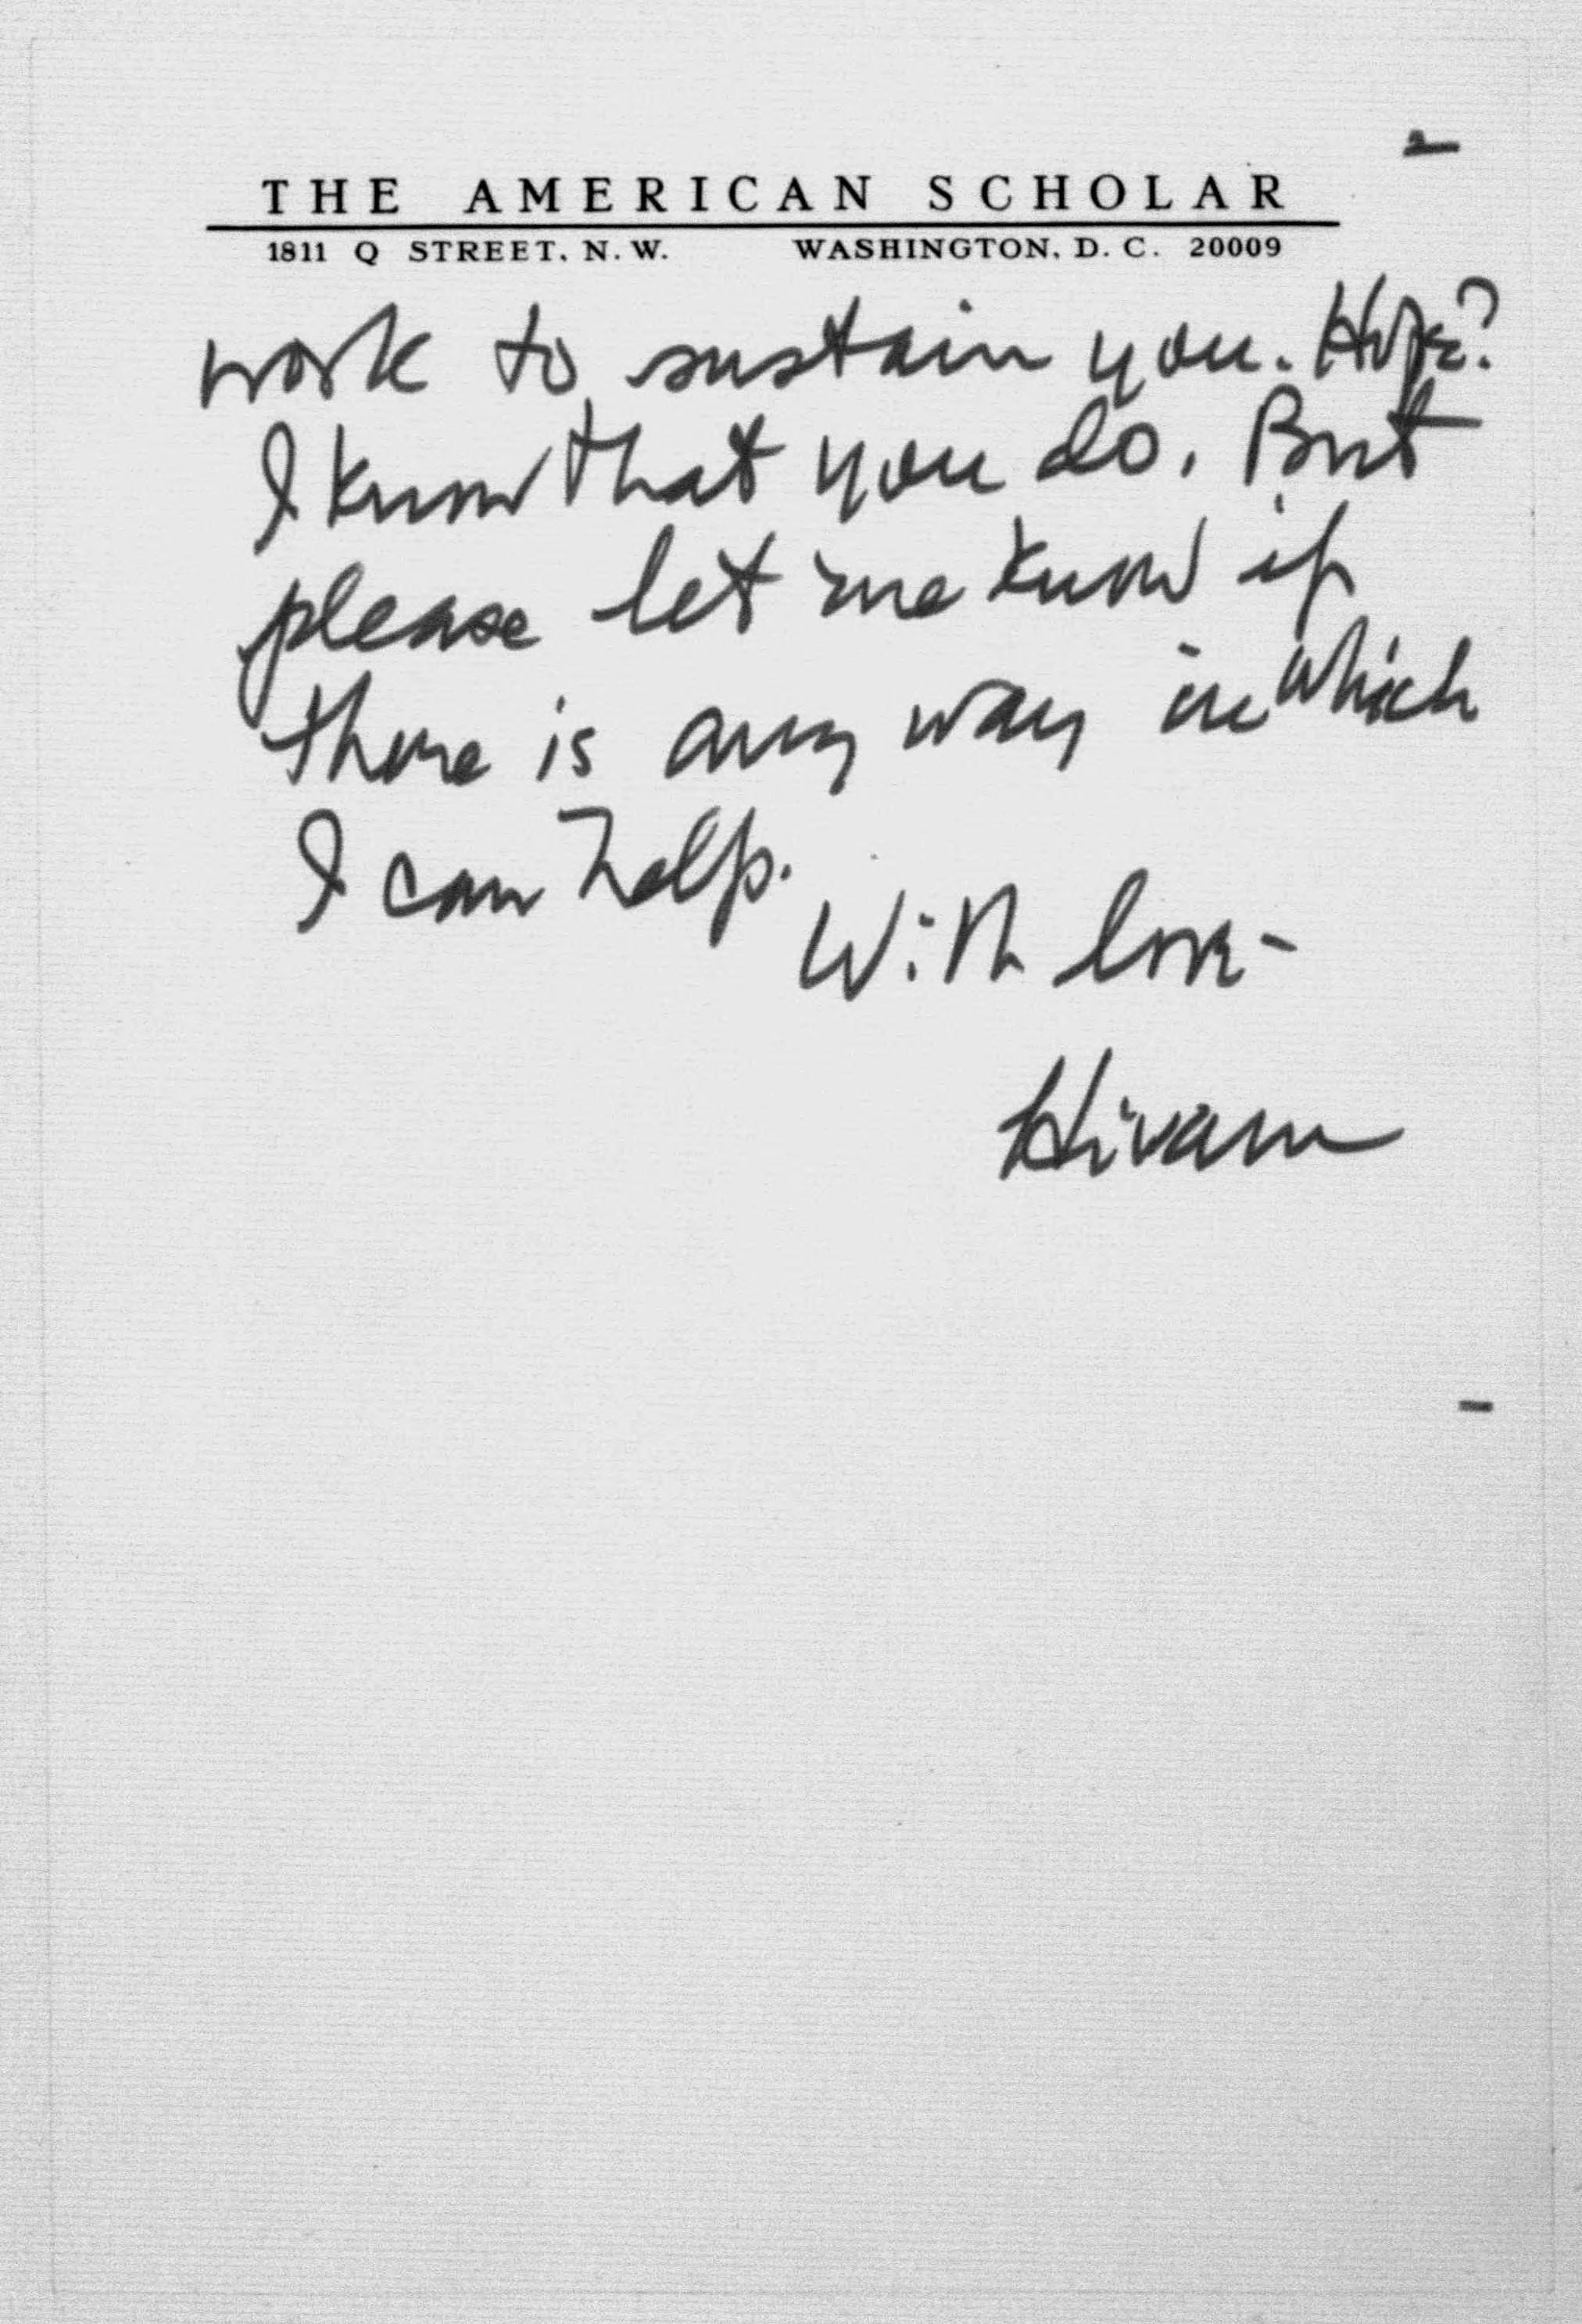 THE AMERICAN SCHOLAR
1811 Q STREET, N.W. WASHINGTON, D.C. 20009
work to sustain you. Hope?
I know that you do. But
please let me know if
there is any way in which
I can help.
With love-
Hiram